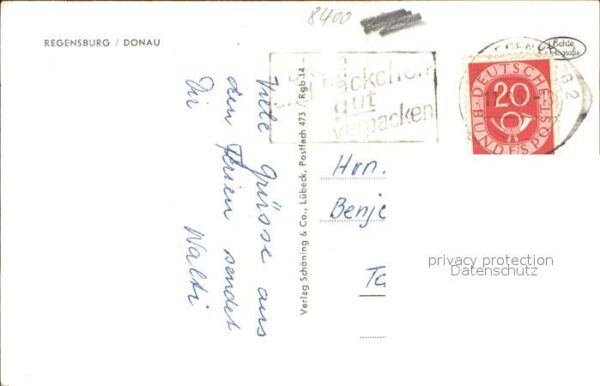 8400
REGENSBURG / DONAU
Echte
päckchen
gut
verpacken
REGENSBURG 2
DEUTSCHE
BUNDESPOST
20
Viele Grüsse aus
den Ferien sendet
Dir Walti
Verlag Schöning & Co., Lübeck, Postfach 473 / Rgb 14
Hrn.
Benje
Ta
privacy protection
Datenschutz